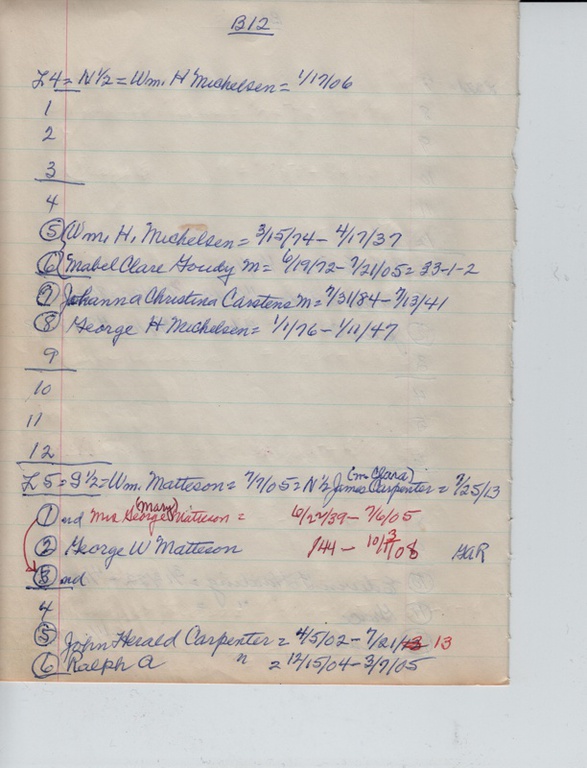 B12
L4 = N 1/2 = Wm. H Michelsen = 1/17/06
1
2
3
4
5 Wm. H. Michelsen = 3/15/74 - 4/17/37
6 Mabel Clare Goudy M = 6/19/72 - 7/21/05 = 33-1-2
7 Johanna Christina Carstens M = 7/31/84 - 7/13/41
8 George H Michelsen = 1/1/76 - 1/11/47
9
10
11
12
L5 = S 1/2 = Wm. Matteson = 7/7/05 = N 1/2 James Carpenter = 7/25/13
(m. Clara)
1 nd Mrs George Matteson = 6/22/39 - 7/6/05
(Mary)
2 George W Matteson 1/44 - 10/3/08 GAR
3 nd
4
5 John Herald Carpenter = 4/5/02 - 7/21/13 13
6 Ralph A " = 12/15/04 - 3/7/05